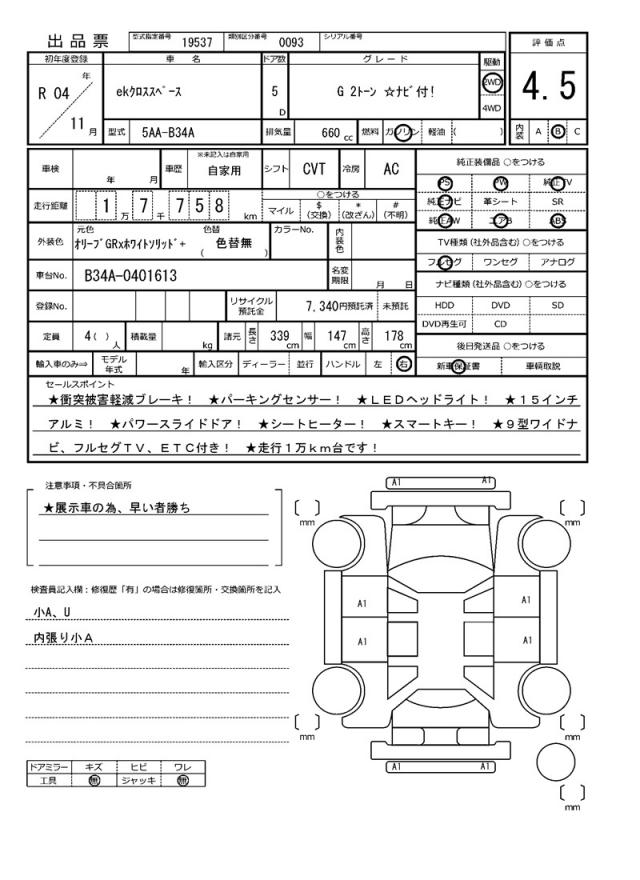 出品票 型式指定番号 19537 類別区分番号 0093 シリアル番号
評価点
4.5
初年度登録 車名 ドア数 グレード 駆動
R 04 年 11 月
ekｸﾛｽｽﾍﾟｰｽ 5 D G 2トーン ☆ナビ付! 2WD 4WD
型式 5AA-B34A 排気量 660 cc 燃料 ガソリン 軽油 ( )
内装 A B C
車検 年 月 車歴 ※未記入は自家用 自家用 シフト CVT 冷房 AC
走行距離 1 万 7 千 7 5 8 km
○をつける
マイル $ (交換) * (改ざん) # (不明)
外装色 元色 ｵﾘｰﾌﾞGRxﾎﾜｲﾄｿﾘｯﾄﾞ+ 色替 ( 色替無 ) カラーNo. 内装色
車台No. B34A-0401613 名変期限 月 日
登録No. リサイクル預託金 7,340円預託済 未預託
定員 4( ) 人 積載量 kg 諸元 長さ 339 cm 幅 147 cm 高さ 178 cm
輸入車のみ⇨ モデル年式 年 輸入区分 ディーラー 並行 ハンドル 左 右
純正装備品 ○をつける
PS PW 純正TV
純正ナビ 革シート SR
純正AW エアB ABS
TV種類 (社外品含む) ○をつける
フルセグ ワンセグ アナログ
ナビ種類 (社外品含む) ○をつける
HDD DVD SD
DVD再生可 CD
後日発送品 ○をつける
新車保証書 車輌取説
セールスポイント
★衝突被害軽減ブレーキ！ ★パーキングセンサー！ ★ＬＥＤヘッドライト！ ★１５インチ
アルミ！ ★パワースライドドア！ ★シートヒーター！ ★スマートキー！ ★９型ワイドナ
ビ、フルセグＴＶ、ＥＴＣ付き！ ★走行１万ｋｍ台です！
注意事項・不具合箇所
★展示車の為、早い者勝ち
検査員記入欄：修復歴「有」の場合は修復箇所・交換箇所を記入
小A、U
内張り小Ａ
ドアミラー キズ ヒビ ワレ
工具 無 ジャッキ 無
A1 A1
mm mm
A1 A1
A1 A1
mm mm
A1 A1
mm